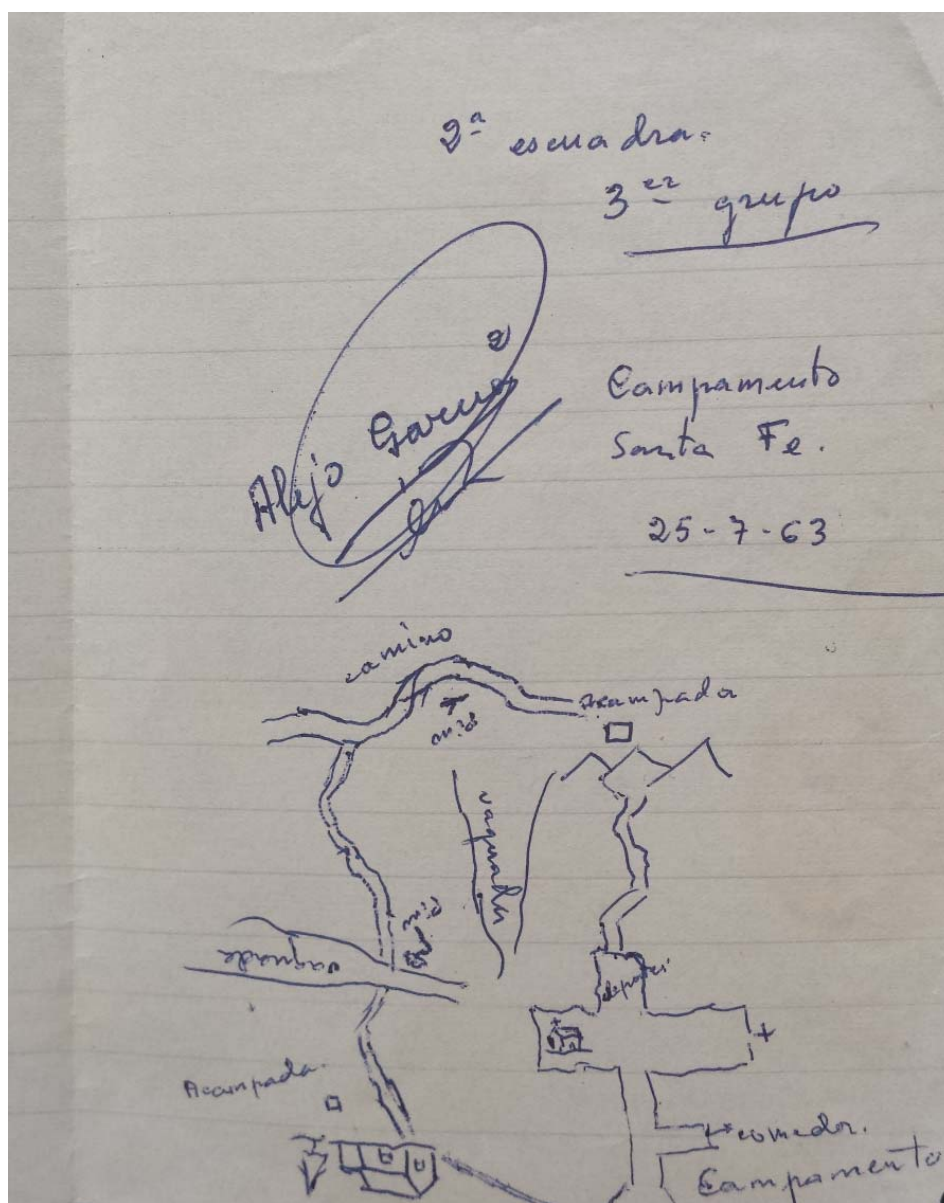 2ª escuadra.
3er grupo
Alejo García
Campamento
Santa Fe.
25-7-63
camino
Acampador
pino
vaguada
Pino
vaguada
deportes
Acampada.
comedor.
Campamento